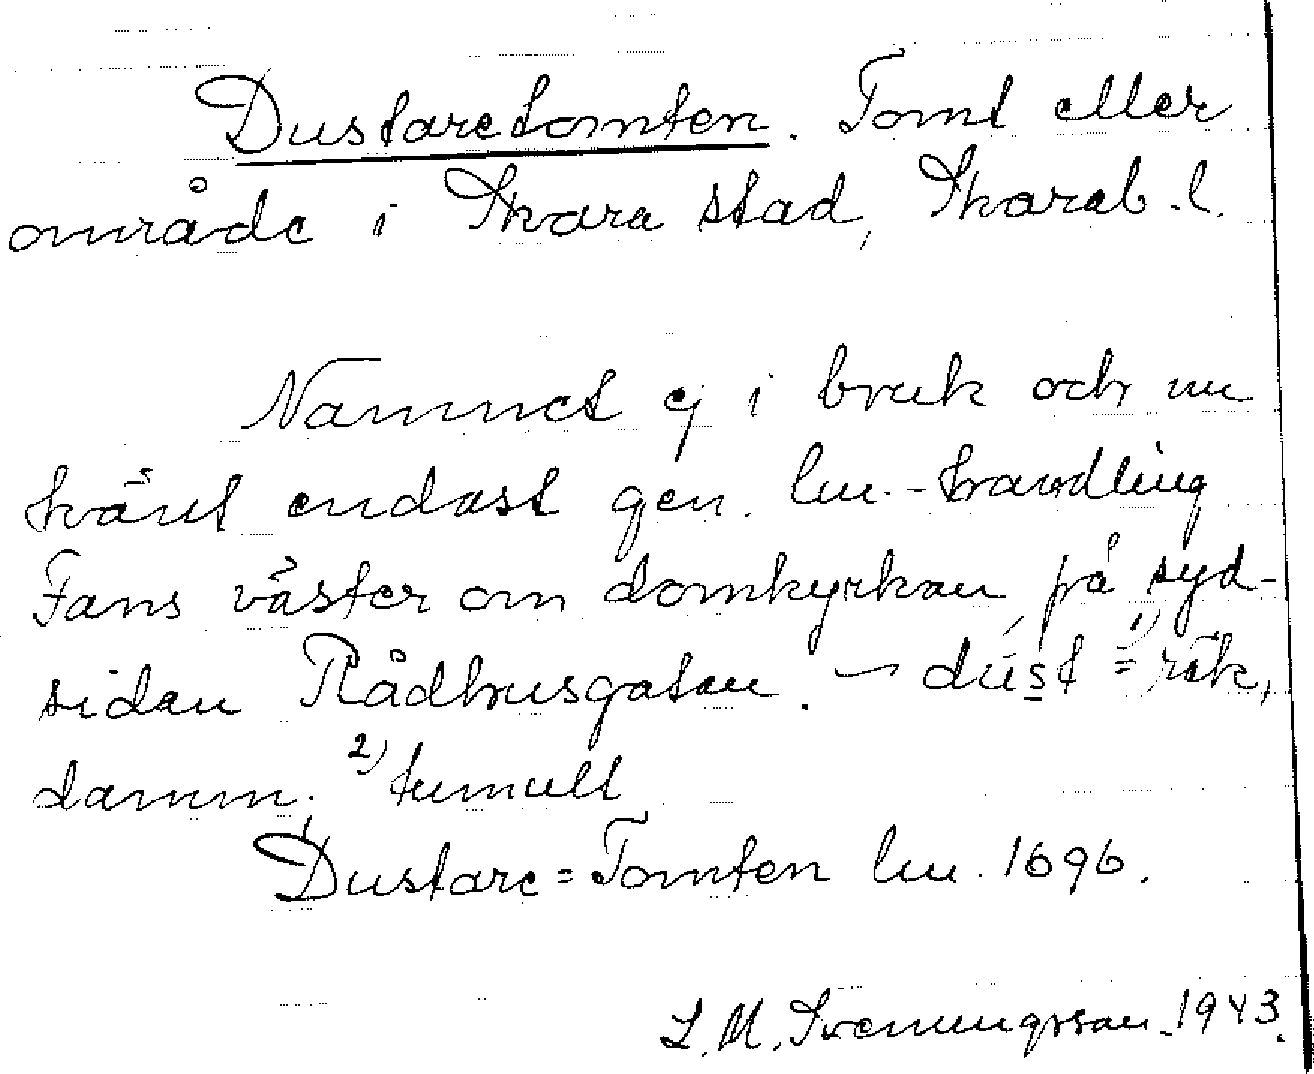 Dustaretomten. Tomt eller
område i Skara stad, Skarab. l.
Namnet ej i bruk och nu
känt endast gen. lm.-handling
Fans väster om domkyrkan, på syd-
sidan Rådhusgatan. - dust = 1) rök,
damm; 2) tumult
Dustare=Tomten lm. 1696.
L. M. Svenungsson. 1943.